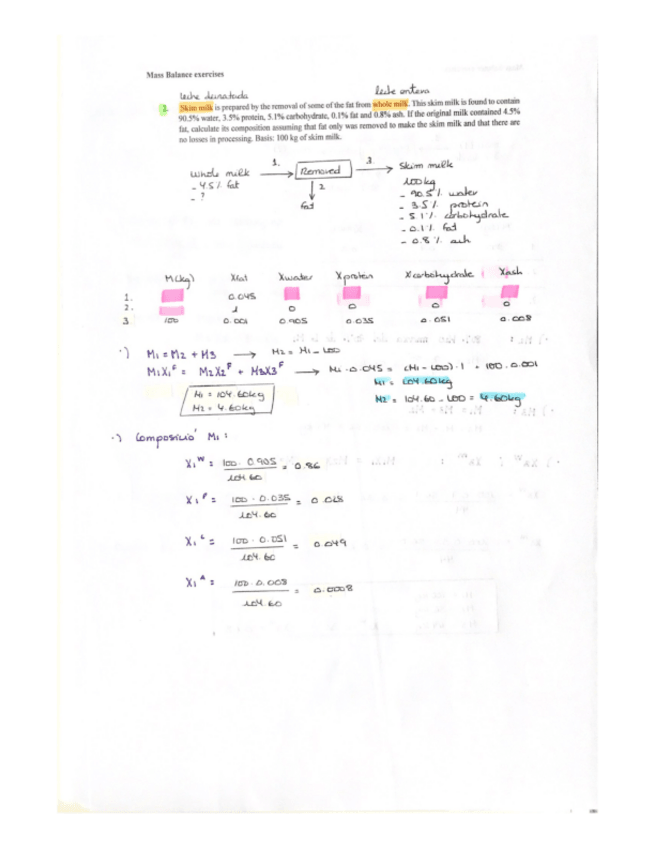 Mass Balance exercises
leche desnatada
leche entera
2. Skim milk is prepared by the removal of some of the fat from whole milk. This skim milk is found to contain
90.5% water, 3.5% protein, 5.1% carbohydrate, 0.1% fat and 0.8% ash. If the original milk contained 4.5%
fat, calculate its composition assuming that fat only was removed to make the skim milk and that there are
no losses in processing. Basis: 100 kg of skim milk.
Whole milk 1. Removed 3. Skim milk
- 4.5% fat
- ?
2
fat
100kg
- 90.5% water
- 3.5% protein
- 5.1% carbohydrate
- 0.1% fat
- 0.8% ash
M(kg) Xfat Xwater Xprotein Xcarbohydrate Xash
1. 0.045
2. 1 0 0 0 0
3 100 0.001 0.905 0.035 0.051 0.008
·) M1 = M2 + M3 → M2 = M1 - 100
M1X1^F = M2X2^F + M3X3^F → M1 · 0.045 = (M1 - 100) · 1 + 100 · 0.001
M1 = 104.60kg
M2 = 104.60 - 100 = 4.60kg
M1 = 104.60kg
M2 = 4.60kg
·) Composició M1 :
X1^W = 100 · 0.905 / 104.60 = 0.86
X1^P = 100 · 0.035 / 104.60 =
X1^C = 100 · 0.051 / 104.60 = 0.049
X1^A = 100 · 0.008 / 104.60 = 0.0008